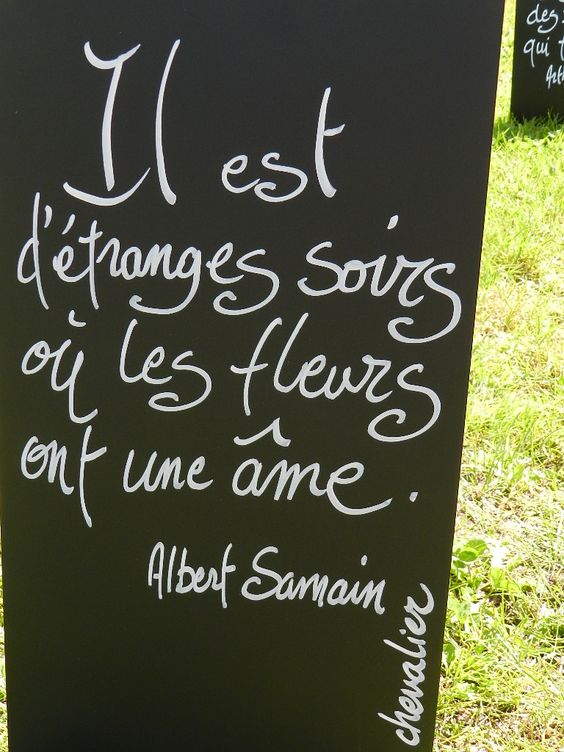 Il est
d'étranges soirs
où les fleurs
ont une âme.
Albert Samain
chevalier
des
qui